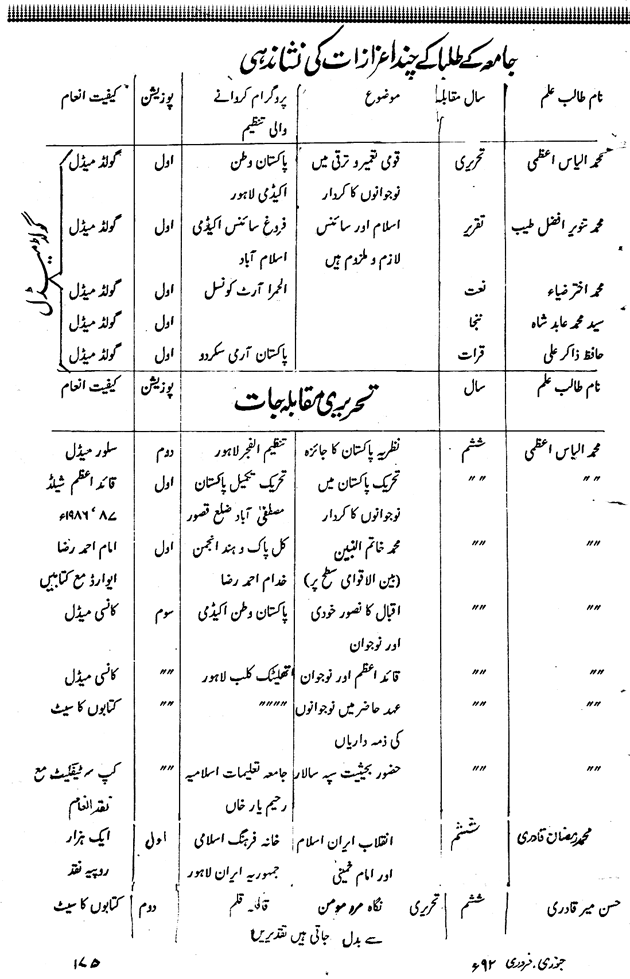 جامعہ کے طلبا کے چند اعزازات کی نشاندہی
نام طالب علم سال مقابلہ موضوع پروگرام کروانے پوزیشن کیفیت انعام
والی تنظیم
محمد الیاس اعظمی تحریری قومی تعمیر و ترقی میں پاکستان وطن اول گولڈ میڈل
نوجوانوں کا کردار اکیڈمی لاہور
محمد تنویر افضل طیب تقریر اسلام اور سائنس فروغ سائنس اکیڈمی اول گولڈ میڈل
لازم و ملزوم ہیں اسلام آباد
محمد اختر ضیاء نعت الحمرا آرٹ کونسل اول گولڈ میڈل
سید محمد عابد شاہ اول گولڈ میڈل
حافظ ذاکر علی قرات پاکستان آرمی سکردو اول گولڈ میڈل
گولڈ میڈل
نام طالب علم سال تحریری مقابلہ جات پوزیشن کیفیت انعام
محمد الیاس اعظمی ششم نظریہ پاکستان کا جائزہ تنظیم الفجر لاہور دوم سلور میڈل
〃 〃 تحریک پاکستان میں تحریک تکمیل پاکستان اول قائد اعظم شیلڈ
نوجوانوں کا کردار مصطفیٰ آباد ضلع قصور ۸۷، ۱۹۸۶ء
〃 〃 محمد خاتم النبین کل پاک و ہند انجمن اول امام احمد رضا
(بین الاقوامی سطح پر) خدام احمد رضا ایوارڈ مع کتابیں
〃 〃 اقبال کا تصور خودی پاکستان وطن اکیڈمی سوم کانسی میڈل
اور نوجوان
〃 〃 قائد اعظم اور نوجوان اتھلیٹک کلب لاہور 〃 کانسی میڈل
〃 〃 عہد حاضر میں نوجوانوں 〃〃 〃 کتابوں کا سیٹ
کی ذمہ داریاں
〃 〃 حضور بحیثیت سپہ سالار جامعہ تعلیمات اسلامیہ 〃 کپ سرٹیفکیٹ مع
رحیم یار خاں نقد انعام
محمد رمضان قادری ششم انقلاب ایران اسلام خانہ فرہنگ اسلامی اول ایک ہزار
اور امام خمینی جمہوریہ ایران لاہور روپیہ نقد
حسن میر قادری ششم تحریری نگاہ مرد مومن قافلہ قلم دوم کتابوں کا سیٹ
سے بدل جاتی ہیں تقدیریں
جنوری، فروری ۹۲ء ۱۷۵